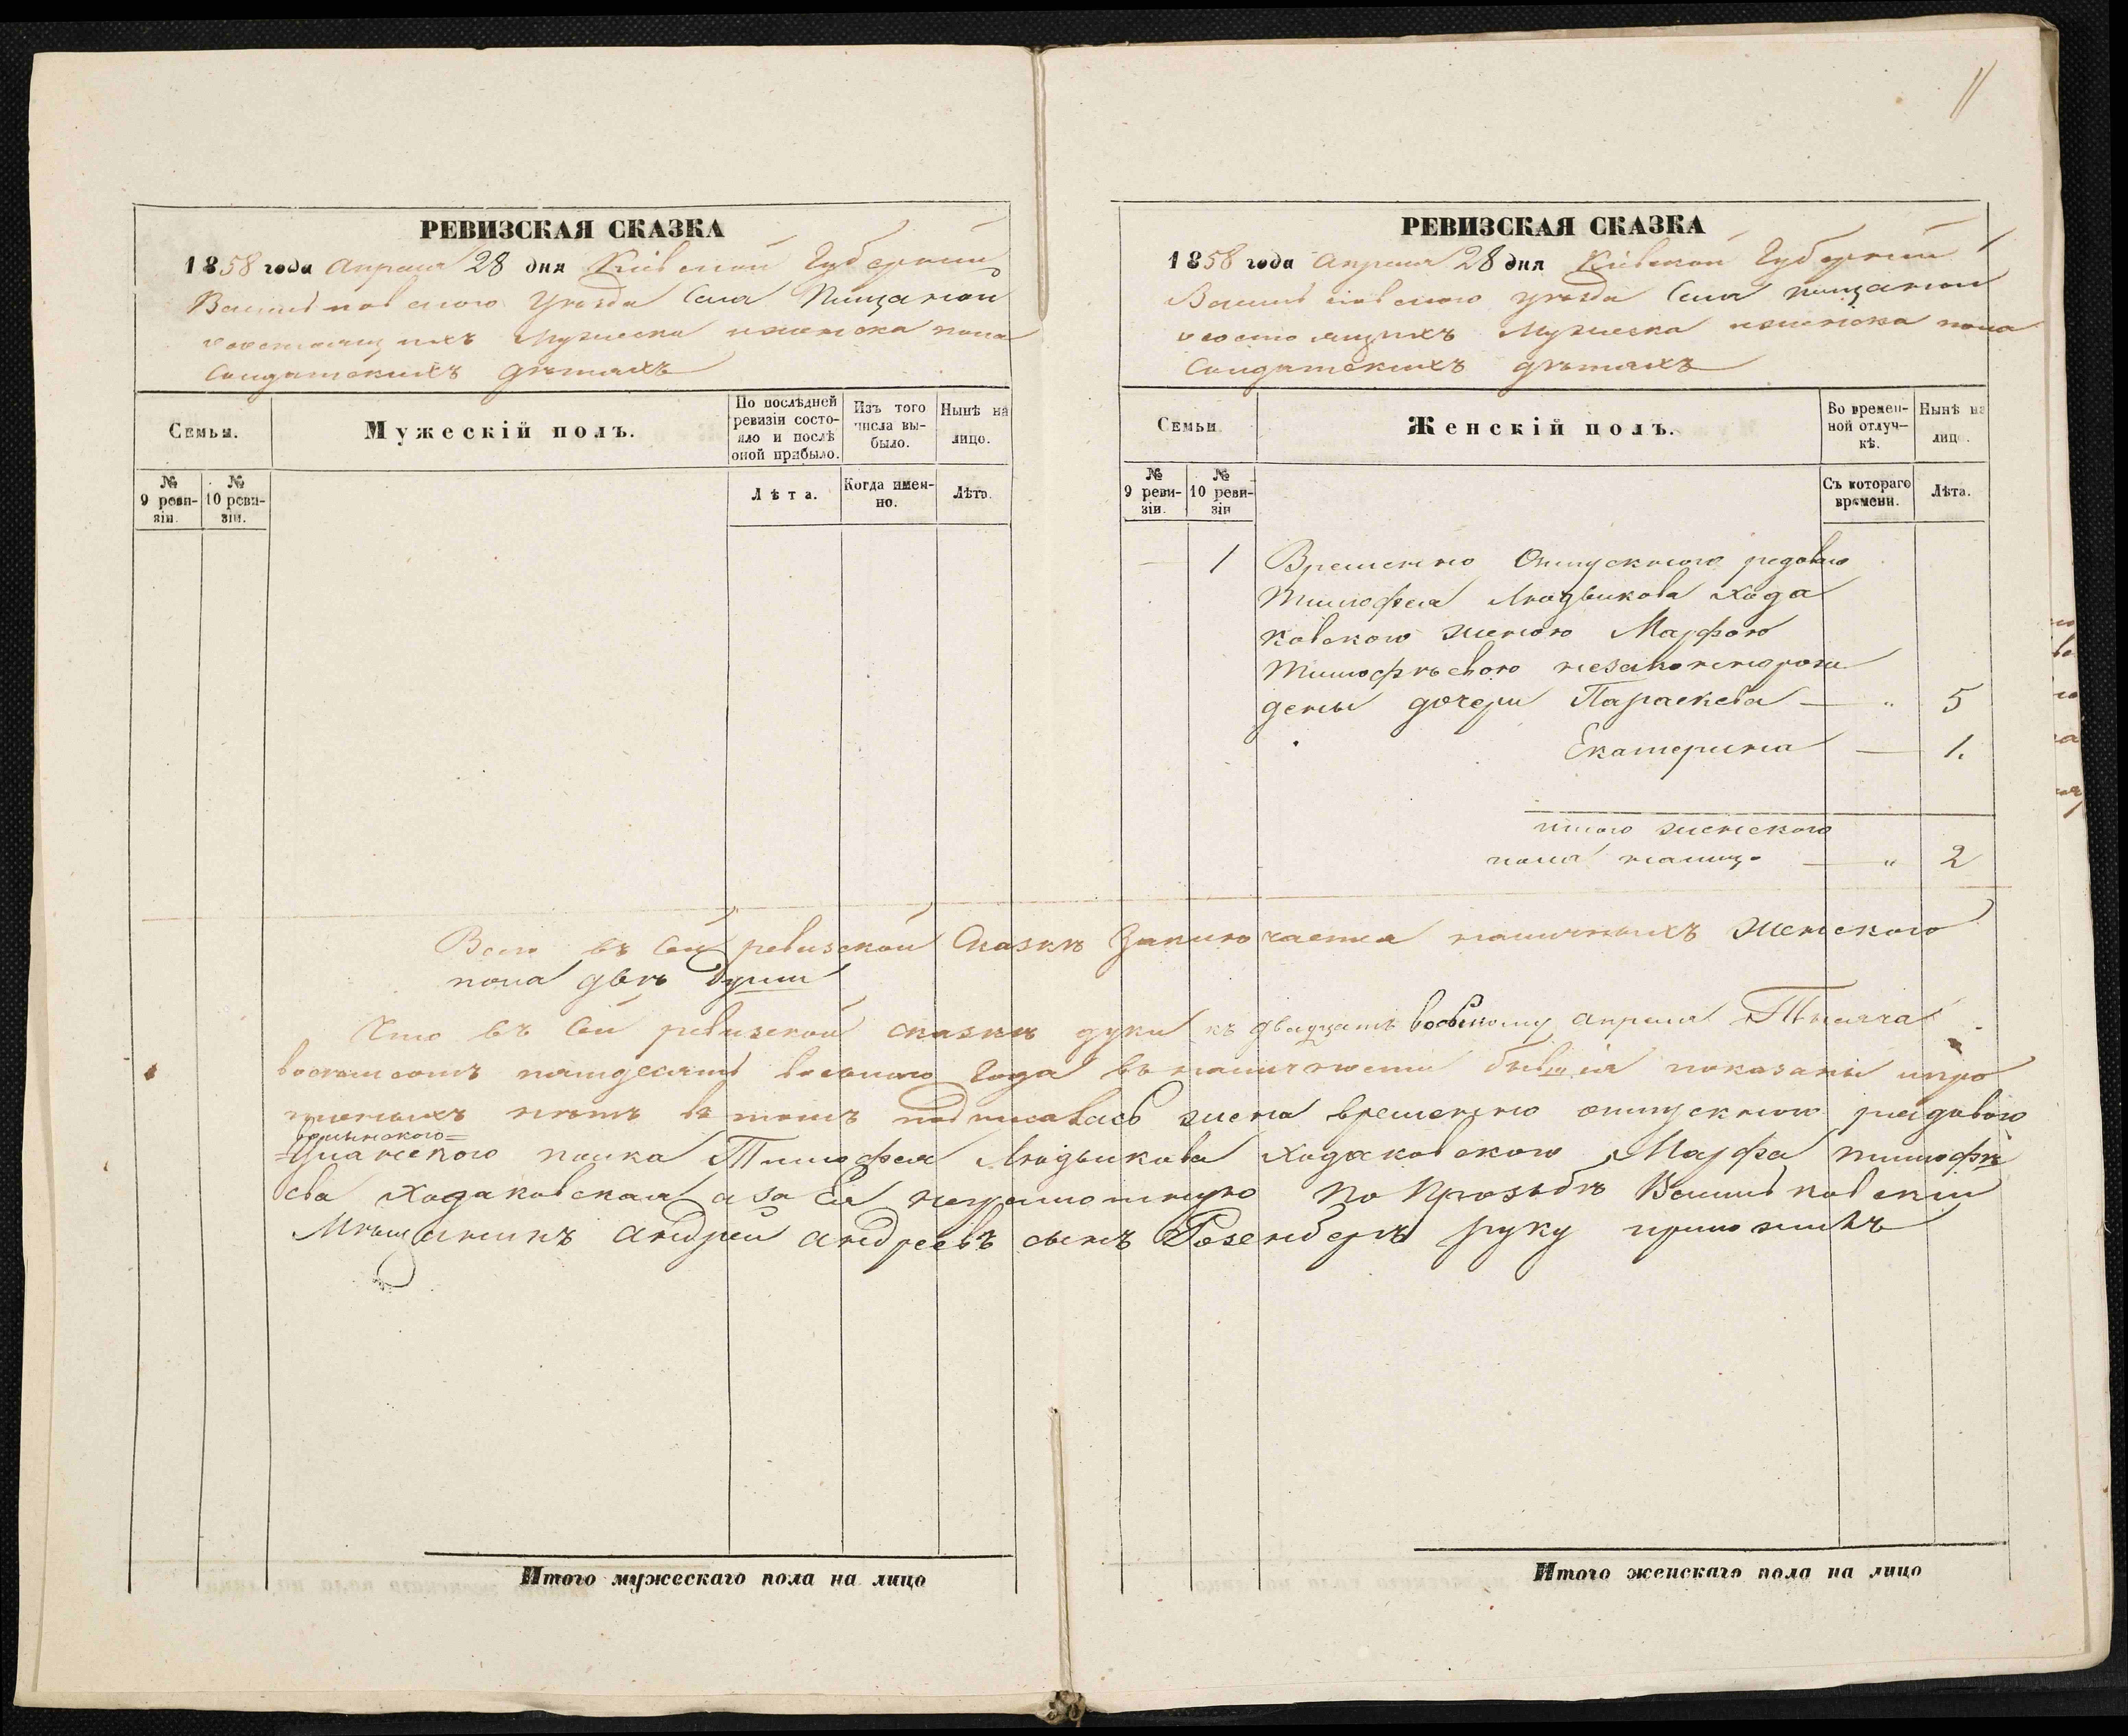 11
РЕВИЗСКАЯ СКАЗКА
1858 года Апреля 28 дня Кіевской Губерніи
Васильковскаго уезда Села Пищаной
состоящихъ Мужеска иженска пола
Солдатскихъ детяхъ
Семьи.
Мужескій полъ.
По послѣдней ревизіи состояло и послѣ оной прибыло.
Изъ того числа выбыло.
Нынѣ на лицо.
№ 9 ревизіи.
№ 10 ревизіи.
Лѣта.
Когда именно.
Лѣта.
РЕВИЗСКАЯ СКАЗКА
1858 года Апреля 28 дня Кіевской Губерніи
Васильковскаго уезда Села пищаной
состоящихъ Мужеска иженска пола
Солдатскихъ дѣтяхъ
Семьи
Женскій полъ.
Во временной отлучкѣ.
Нынѣ на лицо.
№ 9 ревизіи.
№ 10 ревизіи
Съ котораго времени.
Лѣта.
— 1 Временно Отпускного редоваго
Тимофея Людвикова Хода
ковского женою Марфою
Тимофѣевою незаконнорож
дены дочери Параскева — " 5
Екатерина — 1.
итого женского
пола налицо — " 2
Всего въ Сей ревизской Сказкѣ Заключается наличныхъ Женского
пола двѣ души
Что въ Сей ревизской сказкѣ души къ двадцать восьмому апреля Тысяча
восемьсотъ пятдесятъ восьмого Года вналичности бывшія показаны ипро
пущеныхъ нѣтъ втомъ подписалась жена временно отпускного рядового
Уланского полка Тимофея Людвикова Ходаковского Марфа тимофѣ
ева Ходаковская а за Ея неграмотную По прозьбѣ Васильковскій
Мѣщанинъ андрей андреевъ сынъ Розенберъ руку приложилъ
Итого мужескаго пола на лицо
Итого женскаго пола на лицо